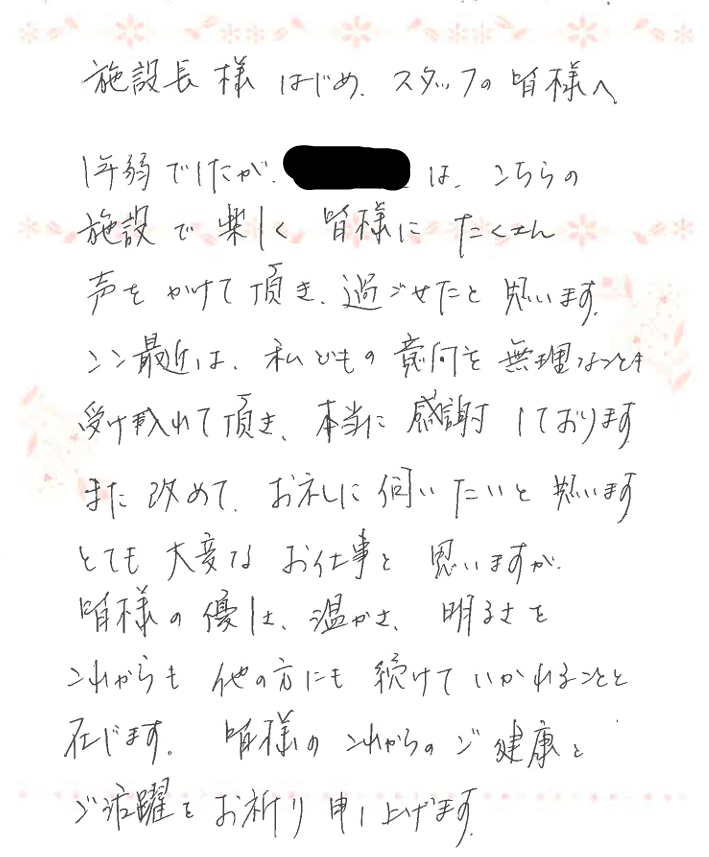 施設長様はじめ、スタッフの皆様へ
1年弱でしたが、は、こちらの
施設で楽しく皆様にたくさん
声をかけて頂き、過ごせたと思います。
最近は、私どもの意向を無理なことも
受け入れて頂き、本当に感謝しております
また改めて、お礼に伺いたいと思います
とても大変なお仕事と思いますが、
皆様の優しさ、温かさ、明るさを
これからも他の方にも続けていかれることと
存じます。皆様のこれからのご健康と
ご活躍をお祈り申し上げます。